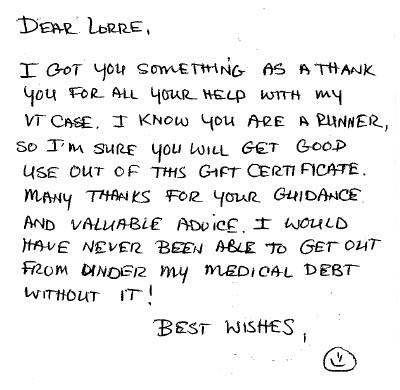 DEAR LORRE,
I GOT YOU SOMETHING AS A THANK
YOU FOR ALL YOUR HELP WITH MY
VT CASE. I KNOW YOU ARE A RUNNER,
SO I'M SURE YOU WILL GET GOOD
USE OUT OF THIS GIFT CERTIFICATE.
MANY THANKS FOR YOUR GUIDANCE
AND VALUABLE ADVICE. I WOULD
HAVE NEVER BEEN ABLE TO GET OUT
FROM UNDER MY MEDICAL DEBT
WITHOUT IT!
BEST WISHES,